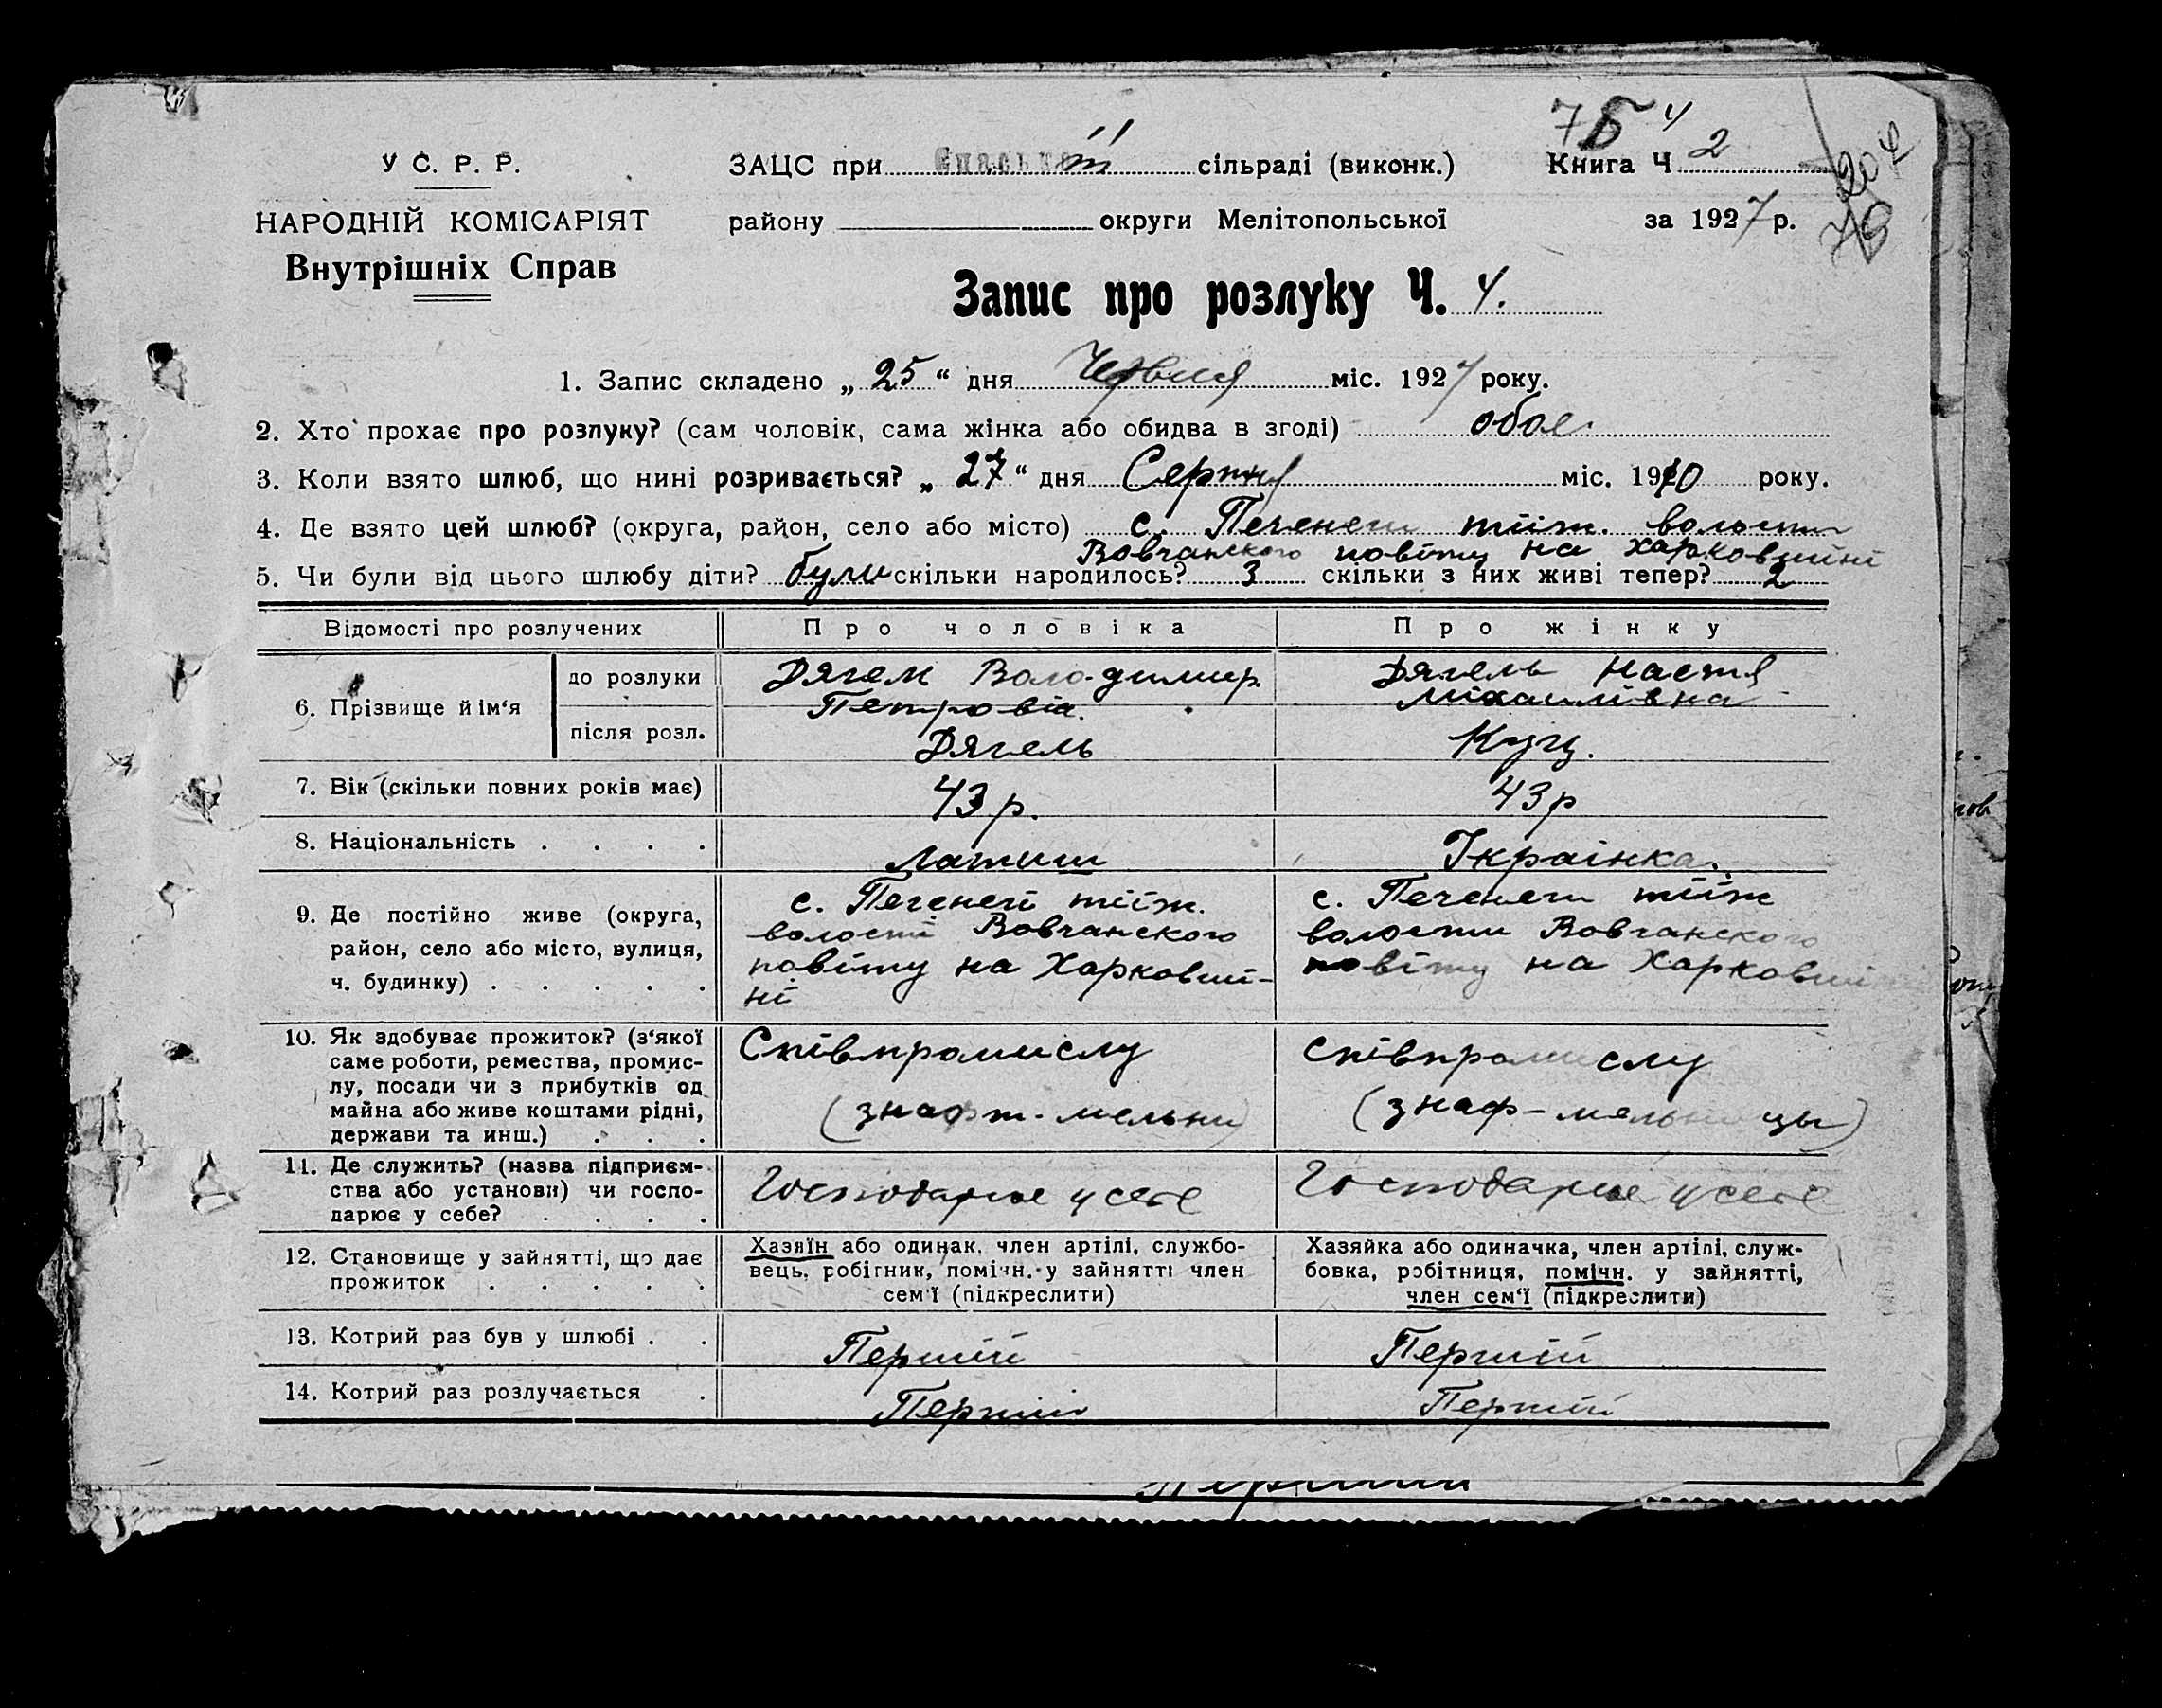 7Б 4
У С. Р. Р.
ЗАЦС при Спаській сільраді (виконк.) Книга Ч 2
204
НАРОДНІЙ КОМІСАРІЯТ
району округи Мелітопольської за 1927 р.
Внутрішніх Справ
Запис про розлуку Ч. 4.
1. Запис складено „ 25 “ дня Червня міс. 1927 року.
2. Хто прохає про розлуку? (сам чоловік, сама жінка або обидва в згоді) обоє.
3. Коли взято шлюб, що нині розривається? „ 27 “ дня Серпня міс. 1910 року.
4. Де взято цей шлюб? (округа, район, село або місто) с. Печенеги тіїж. волости
Вовчанского повіту на харковшіні
5. Чи були від цього шлюбу діти? були скільки народилось? 3 скільки з них живі тепер? 2
Відомості про розлучених Про чоловіка Про жінку
6. Прізвище й ім‘я
до розлуки
Дягель Володимир
Петровіч.
Дягель Настя
Міхаилівна
після розл.
Дягель
Куц.
7. Вік (скільки повних років має)
43 р.
43 р
8. Національність . . . .
Латиш
Україінка.
9. Де постійно живе (округа,
район, село або місто, вулиця,
ч. будинку) . . . . .
с. Печенегі тіїж.
волості Вовчанского
повіту на Харковши-
ні
с. Печенеги тіїж
волости Вовчанского
повіту на Харковши
10. Як здобуває прожиток? (з‘якої
саме роботи, ремества, промис-
лу, посади чи з прибутків од
майна або живе коштами рідні,
держави та инш.) . . .
Співпромислу
співпромислу
11. Де служить? (назва підприєм-
ства або установи) чи госпо-
дарює у себе? . . . .
Господарює у себе
Господарює у себе
12. Становище у зайнятті, що дає
прожиток . . . . .
Хазяїн або одинак, член артілі, службо-
вець, робітник, помічн. у зайнятті член
сем‘ї (підкреслити)
Хазяйка або одиначка, член артілі, служ-
бовка, робітниця, помічн. у зайнятті,
член сем‘ї (підкреслити)
13. Котрий раз був у шлюбі . .
Перший
Перший
14. Котрий раз розлучається .
Перший
Перший